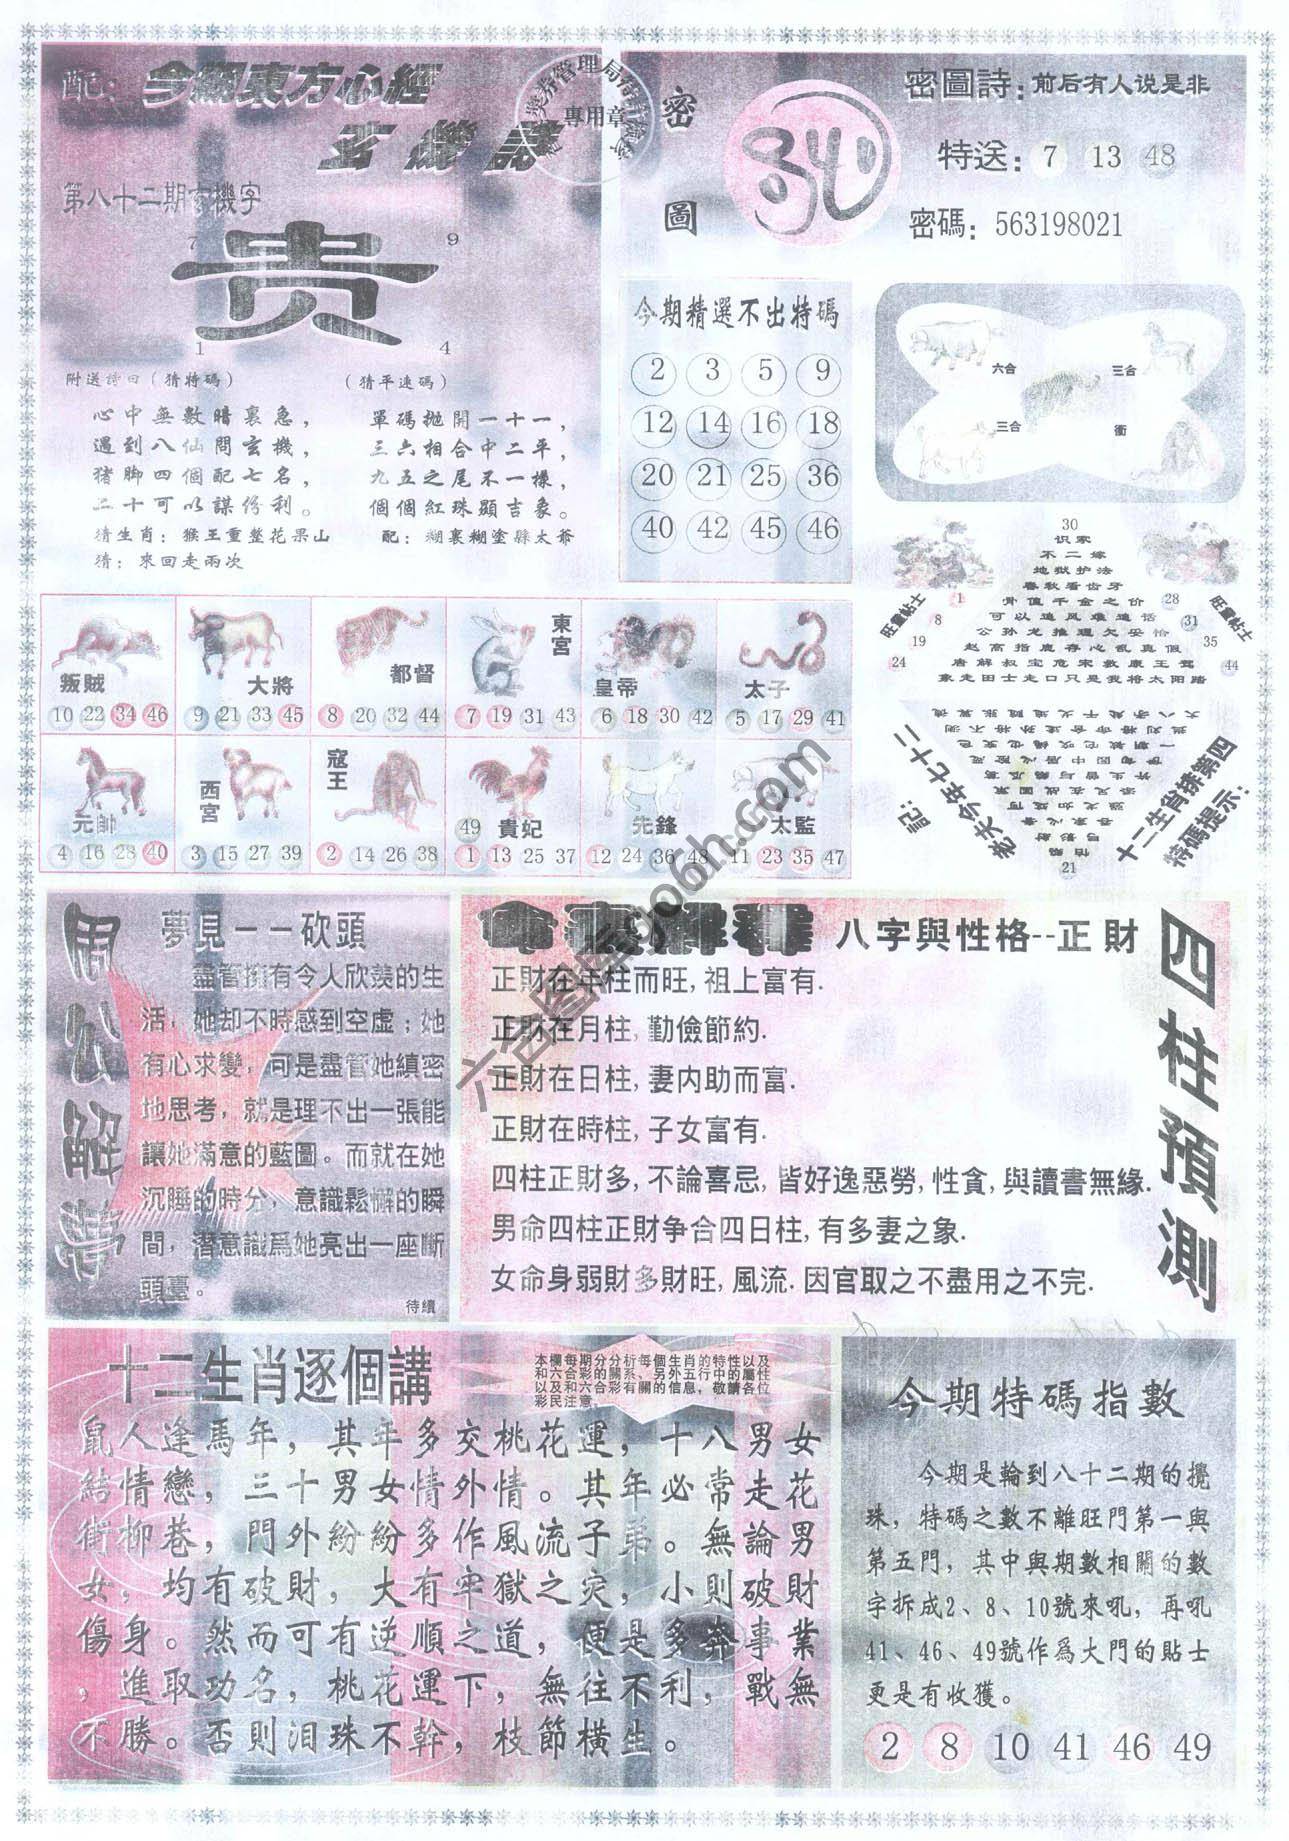 配：今期東方心經
玄機詩
第八十二期玄機字
7 9
贵
1 4
附送詩曰（猜特碼）
（猜平速碼）
心中無數暗裏急，
遇到八仙問玄機，
猪脚四個配七名，
二十可以謀份利。
單碼抛開一十一，
三六相合中二平，
九五之尾不一樣，
個個紅珠顯吉象。
猜生肖：猴王重整花果山
配：糊裏糊塗縣太爺
猜：來回走兩次
獎券管理局
專用章
密圖
密圖詩：前后有人说是非
特送：7 13 48
密碼：563198021
今期精選不出特碼
2 3 5 9
12 14 16 18
20 21 25 36
40 42 45 46
六合
三合
三合
衝
30
识家
不二嫁
地狱护法
春秋看齿牙
骨值千金之价
可以追风难追话
公孙龙推理欠妥恰
赵高指鹿存心乱真假
唐解叔宝危宋救康王驾
象走田士走口只是我将太阳踏
旺重帖士
旺重帖士
1 8 19 24
28 31 35 44
21
配：老夫今年七十二
十二生肖排第四
特碼提示：
叛賊
10 22 34 46
大將
9 21 33 45
都督
8 20 32 44
東宮
7 19 31 43
皇帝
6 18 30 42
太子
5 17 29 41
元帥
4 16 28 40
西宮
3 15 27 39
寇王
2 14 26 38
49 貴妃
1 13 25 37
先鋒
12 24 36 48
太監
11 23 35 47
周公解夢
夢見－－砍頭
盡管擁有令人欣羨的生
活，她却不時感到空虛；她
有心求變，可是盡管她縝密
地思考，就是理不出一張能
讓她滿意的藍圖。而就在她
沉睡的時分，意識鬆懈的瞬
間，潛意識爲她亮出一座斷
頭臺。
待續
八字與性格--正財
正財在年柱而旺,祖上富有.
正財在月柱,勤儉節約.
正財在日柱,妻内助而富.
正財在時柱,子女富有.
四柱正財多,不論喜忌,皆好逸惡勞,性貪,與讀書無緣.
男命四柱正財争合四日柱,有多妻之象.
女命身弱財多財旺,風流.因官取之不盡用之不完.
四柱預測
十二生肖逐個講
本欄每期分分析每個生肖的特性以及
和六合彩的關系、另外五行中的屬性
以及和六合彩有關的信息，敬請各位
彩民注意。
鼠人逢馬年，其年多交桃花運，十八男女
結情戀，三十男女情外情。其年必常走花
街柳巷，門外紛紛多作風流子弟。無論男
女，均有破財，大有牢獄之灾，小則破財
傷身。然而可有逆順之道，便是多奔事業
，進取功名，桃花運下，無往不利，戰無
不勝。否則泪珠不幹，枝節橫生。
今期特碼指數
今期是輪到八十二期的攪
珠，特碼之數不離旺門第一與
第五門，其中與期數相關的數
字拆成2、8、10號來吼，再吼
41、46、49號作爲大門的貼士
更是有收獲。
2 8 10 41 46 49
六合图库gj06h.com